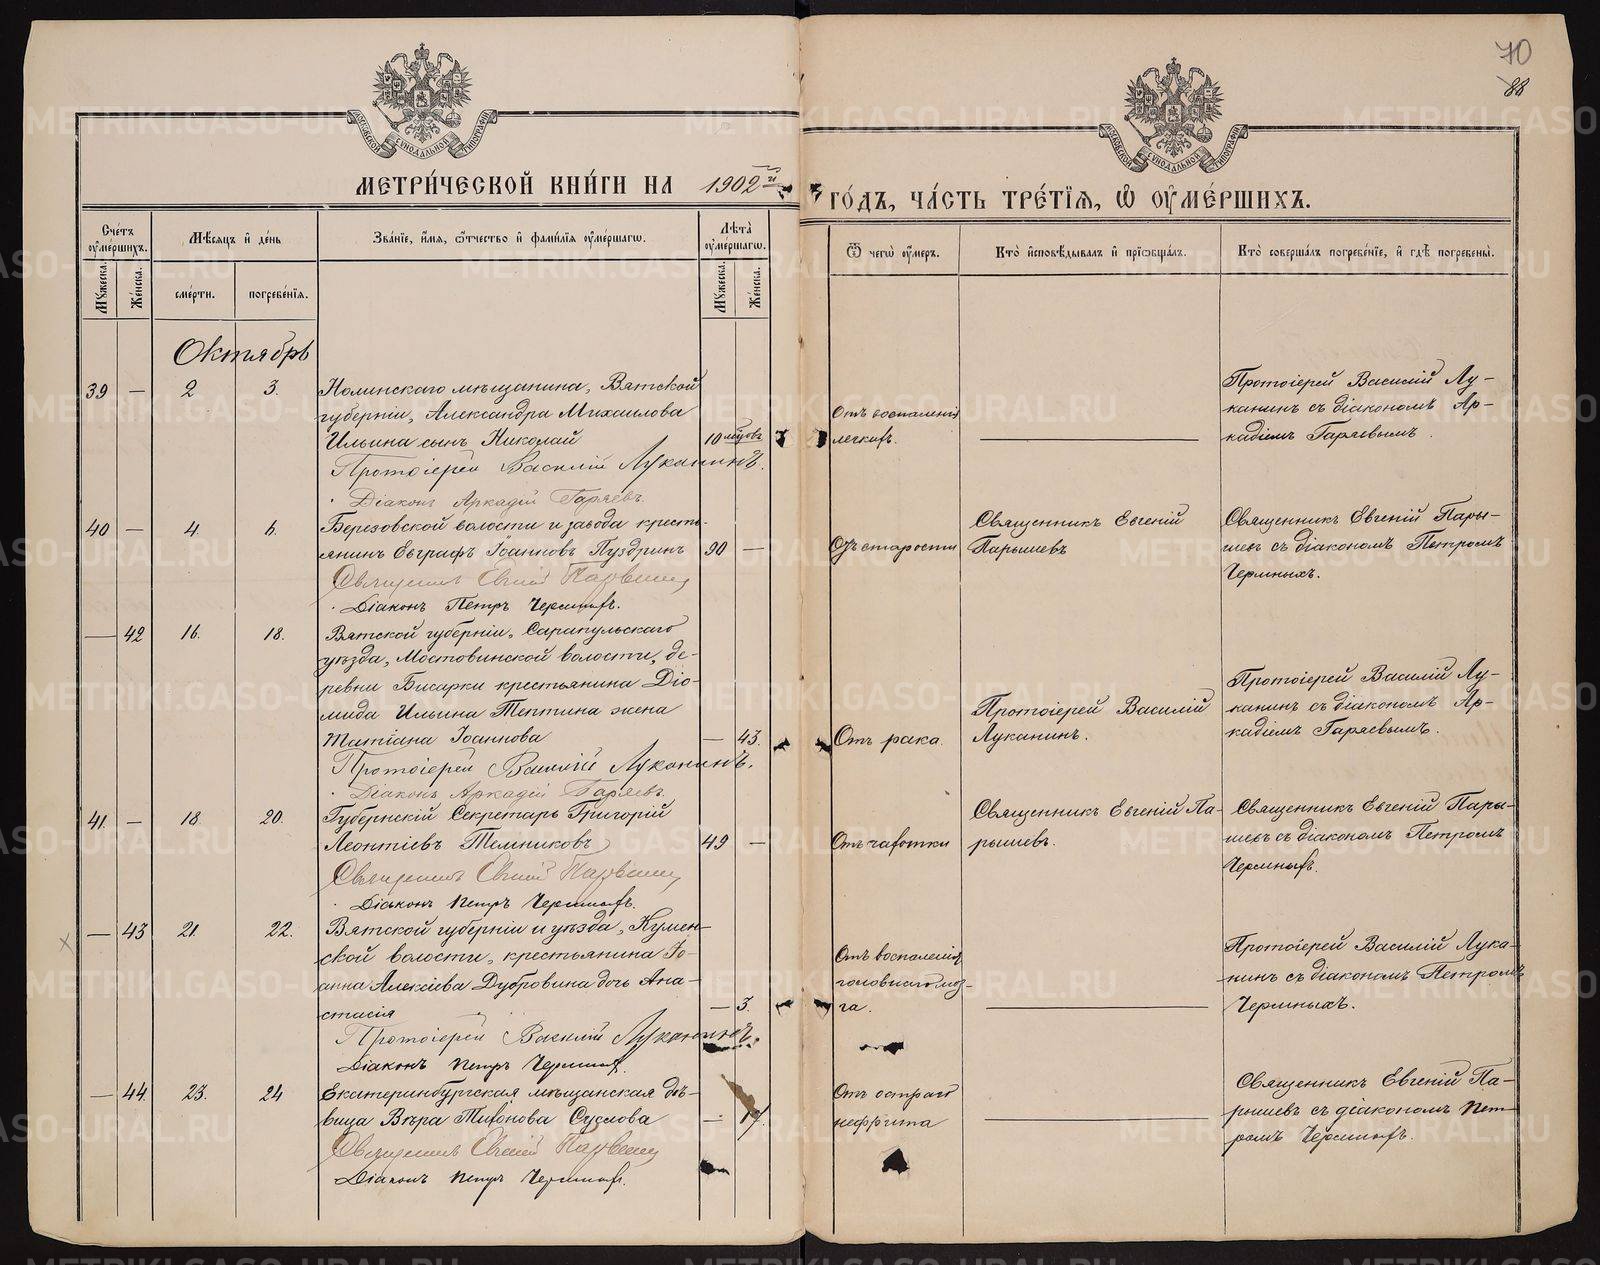 70
88
МОСКОВСКОЙ СѴНОДАЛЬНОЙ ТИПОГРАФІИ
МОСКОВСКОЙ СѴНОДАЛЬНОЙ ТИПОГРАФІИ
МЕТРИ́ЧЕСКОЙ КНИ́ГИ НА 1902й
ГО́ДЪ, ЧА́СТЬ ТРЕ́ТІѦ, Ѿ ОУ҆МЕ́РШИХЪ.
Сче́тъ оу҆ме́ршихъ.
Мꙋ́жеска.
Же́нска.
Мѣ́сѧцъ и҆ де́нь
сме́рти.
погребе́нїѧ.
Зва́нїе, и҆́мѧ, ѻ҆́тчество и҆ фами́лїѧ оу҆ме́ршагѡ.
Лѣ́та оу҆ме́ршагѡ.
Мꙋ́жеска.
Же́нска.
Ѿ чегѡ̀ оу҆́меръ.
Кто̀ и҆сповѣ́дывалъ и҆ прїѡбща́лъ.
Кто̀ соверша́лъ погребе́нїе, и҆ гдѣ̀ погребены̀.
Октябрь
39 — 2 3.
Нолинскаго мѣщанина, Вятской
губерніи, Александра Михаилова
Ильина сынъ Николай 10 мцовъ
Протоіерей Василій Луканинъ.
Діаконъ Аркадій Гаряевъ.
Отъ воспаленія
легкихъ.
Протоіерей Василій Лу-
канинъ съ діакономъ Ар-
кадіемъ Гаряевымъ.
40 — 4. 6.
Березовской волости и завода кресть-
янинъ Евграфъ Іоанновъ Пуздринъ 90 —
Священникъ Евгеній Парышевъ
Діаконъ Петръ Черемныхъ.
Отъ старости
Священникъ Евгеній
Парышевъ
Священникъ Евгеній Пары-
шевъ съ діакономъ Петромъ
Черемныхъ.
— 42 16. 18.
Вятской губерніи, Сарапульскаго
уѣзда, Мостовинской волости, де-
ревни Бисарки крестьянина Діо-
мида Ильина Тептина жена
Татіана Іоаннова — 43.
Протоіерей Василій Луканинъ.
Діаконъ Аркадій Гаряевъ.
Отъ рака.
Протоіерей Василій
Луканинъ.
Протоіерей Василій Лу-
канинъ съ діакономъ Ар-
кадіемъ Гаряевымъ.
41. — 18. 20.
Губернскій Секретарь Григорій
Леонтіевъ Темниковъ 49 —
Священникъ Евгеній Парышевъ
Діаконъ Петръ Черемныхъ.
Отъ чахотки
Священникъ Евгеній Па-
рышевъ.
Священникъ Евгеній Пары-
шевъ съ діакономъ Петромъ
Черемныхъ.
— 43 21. 22.
Вятской губерніи и уѣзда, Кумен-
ской волости, крестьянина Іо-
анна Алексіева Дубровина дочь Ана-
стасія — 3.
Протоіерей Василій Луканинъ.
Діаконъ Петръ Черемныхъ.
Отъ воспаленія
головнаго моз-
га.
Протоіерей Василій Лука-
нинъ съ діакономъ Петромъ
Черемныхъ.
— 44. 23. 24
Екатеринбургская мѣщанская дѣ-
вица Вѣра Тихонова Суслова — 17.
Священникъ Евгеній Парышевъ
Діаконъ Петръ Черемныхъ.
Отъ остраго
нефрита
Священникъ Евгеній Па-
рышевъ съ діакономъ Пет-
ромъ Черемныхъ.
METRIKI.GASO-URAL.RU